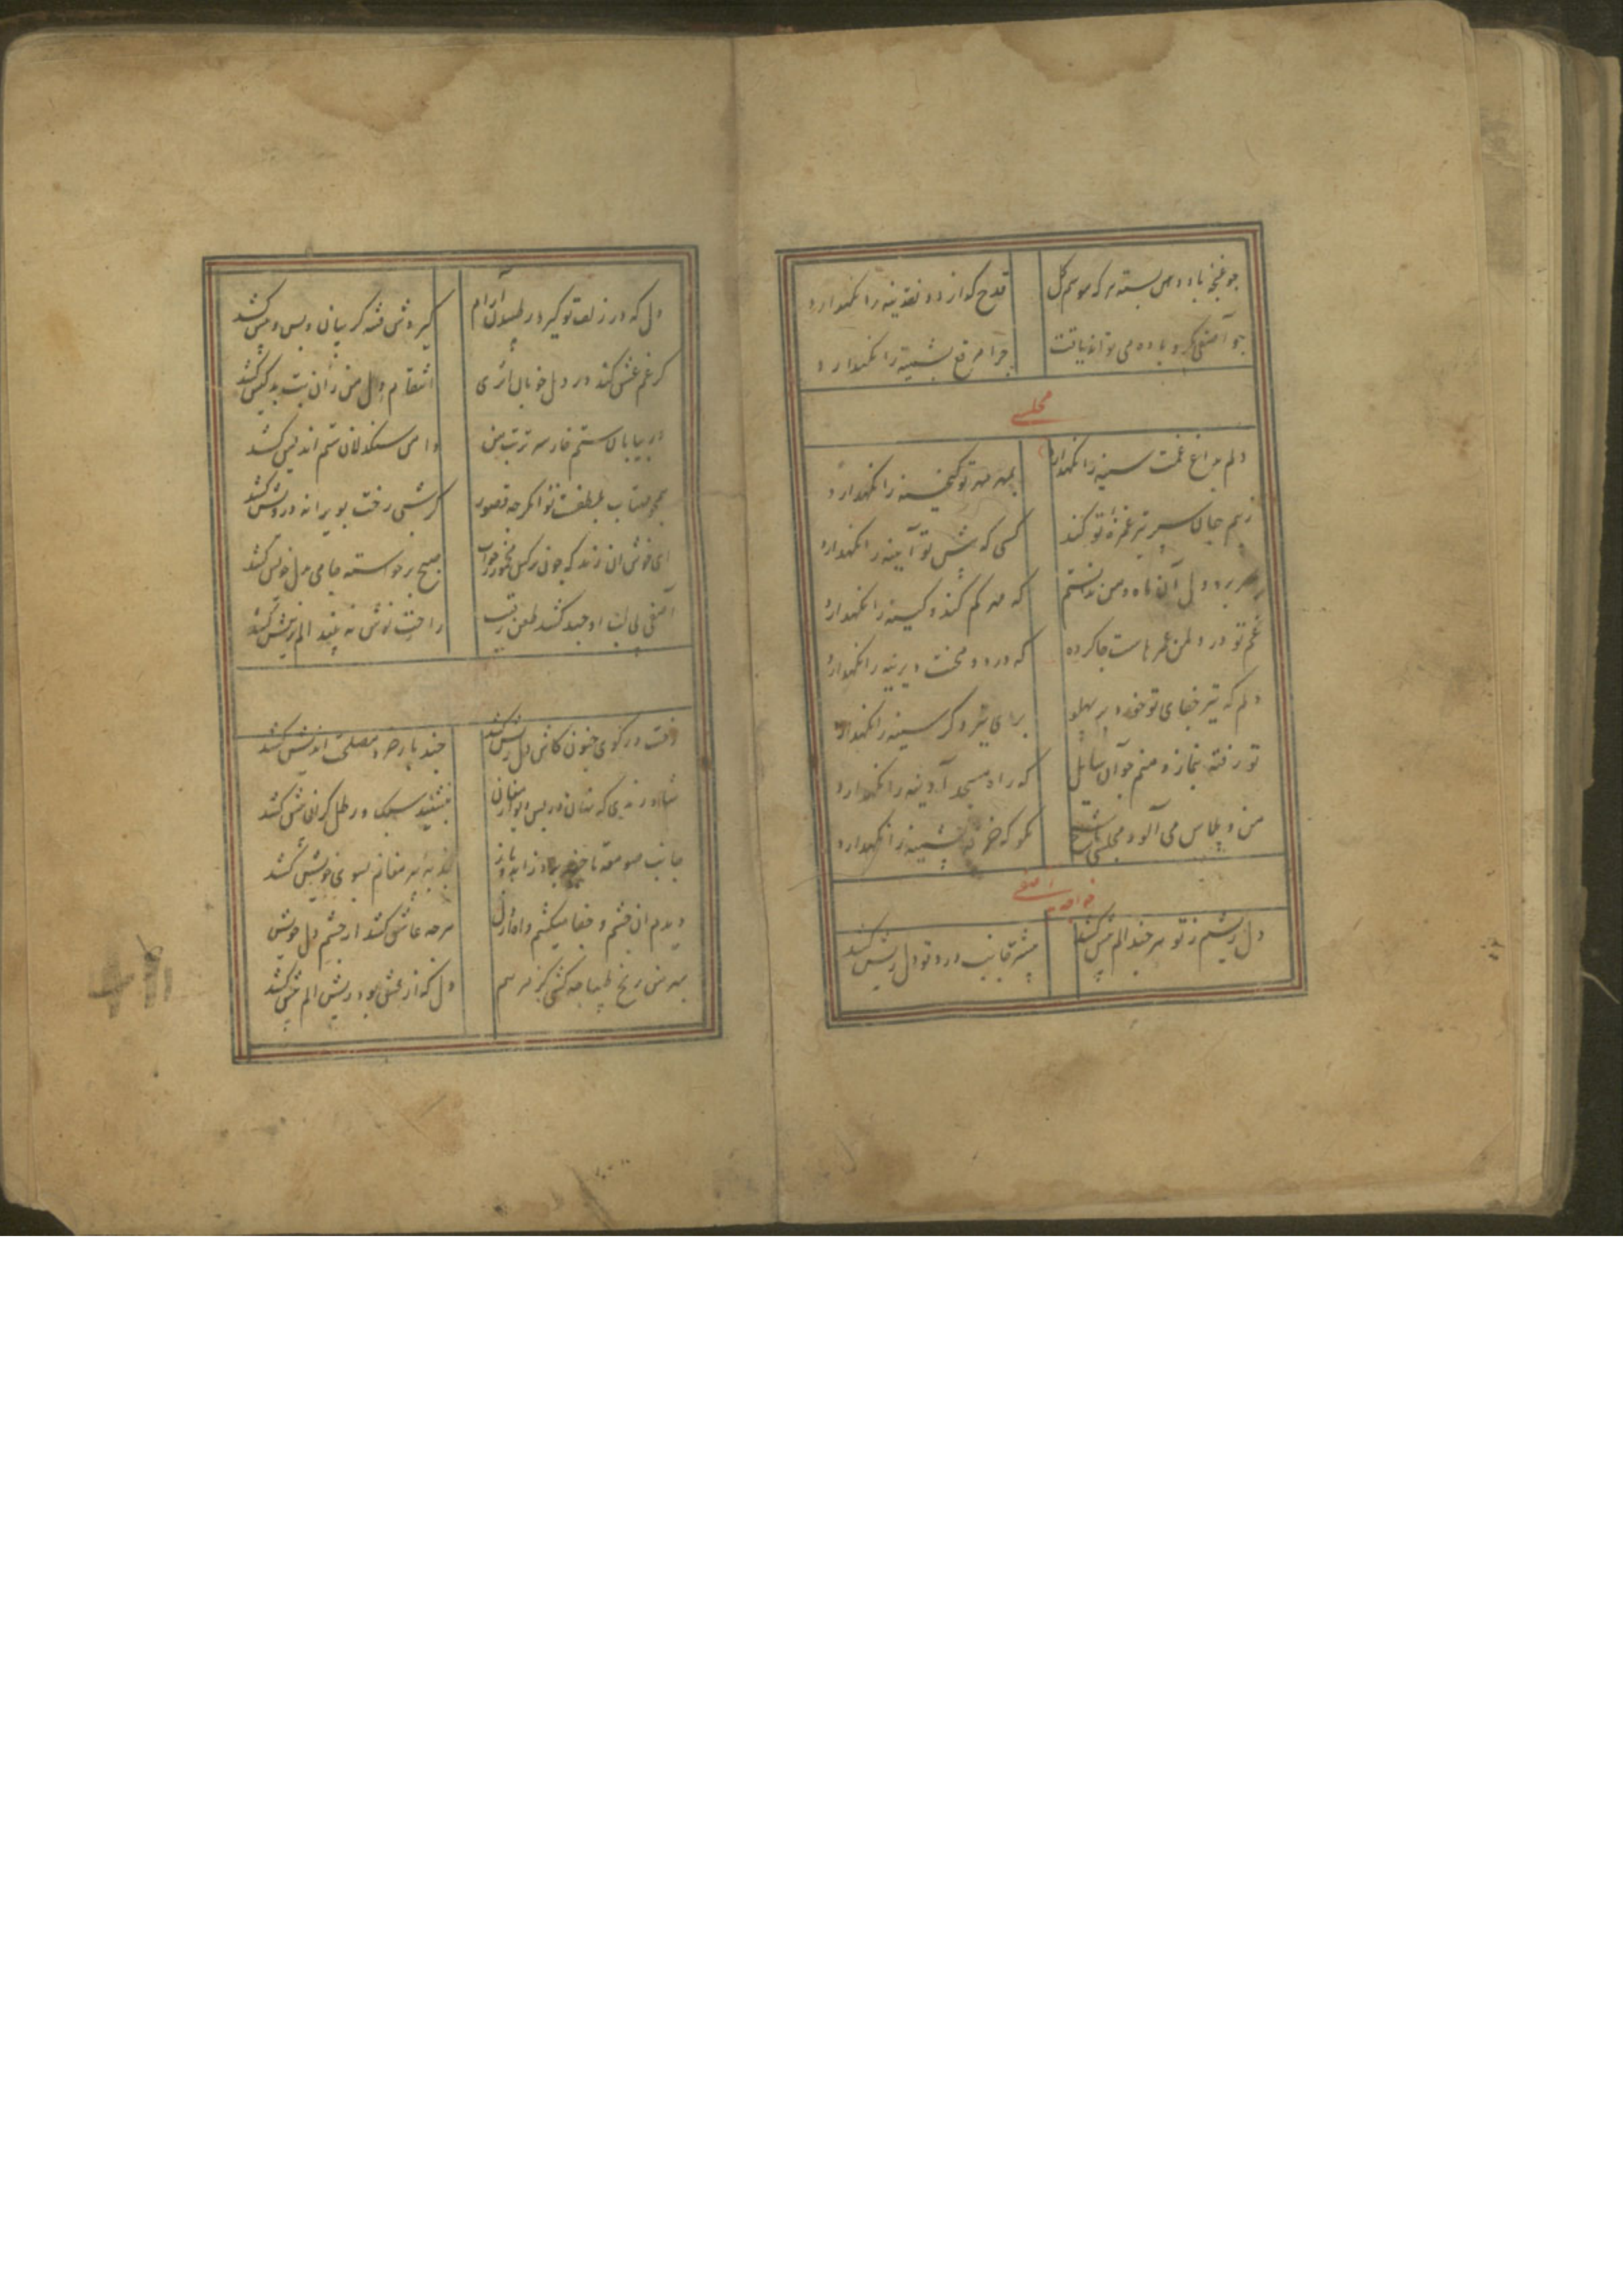 چو غنچه باد دهن بسته هر که موسم گل
قدح گذارد و نقدینه را نگهدارد
چو آصفی گرو باده می تواند یافت
چرا مرقع پشمینه را نگهدارد
مجلسی
دلم بداغ غمت سینه را نگهدارد
بمهر مهر تو گنجینه را نگهدارد
ز بیم جان سپر تیر غمزه تو کند
کسی که پیش تو آیینه را نگهدارد
ببرد دل آن ماه و من ندانستم
که مهر کم کند و کینه را نگهدارد
غم تو در دل من عمرهاست جا کرده
که درد و محنت دیرینه را نگهدارد
دلم که تیر جفای تو خورد بر پهلو
برای تیر دگر سینه را نگهدارد
تو رفته بنماز و منم چو آن سایل
که راه مسجد آدینه را نگهدارد
من و پلاس می آلود مجلسی با شیخ
بگو که خرقه پشمینه را نگهدارد
خواجه آصفی
دل ریشم ز تو هر چند الم بیش کشد
بیشتر جانب درد تو دل ریش کشد
دل که در زلف تو گیرد دلم آرام
گیردش فتنه گریبان و پس و پیش کشد
گر غم عشق کند در دل خوبان اثری
انتقام دل من زان بت بدکیش کشد
در بیابان ستم خار سر تربت من
دامن سنگدلان ستم اندیش کشد
همچو مهتاب بلطفت تو اگر چه قصور
گر شبی رخت بویرانه درویش کشد
ای خوش آن رند که چون نرگس مخمور ز خواب
صبح برخاسته جامی بدل خویش کشد
آصفی بی لب او چند کشد طعن رقیب
راحت نوش نه بیند الم نیش کشد
رخت در کوی جنون کاش دل ریش کشد
چند بار خرد مصلحت اندیش کشد
شاد رندی که نهان در پس دیوار مغان
بنشیند سبک و رطل گران بیش کشد
جانب صومعه تا خضر برد زاهد و باز
جذبه پیر مغانم بسوی خویش کشد
دیدم آن خشم و جفا میکشم و اه از دل
هر چه عاشق کشد از چشم و دل خویش کشد
بهر من رنج طبیبا چه کشی کز مرهم
دل که از عشق بود ریش الم بیش کشد